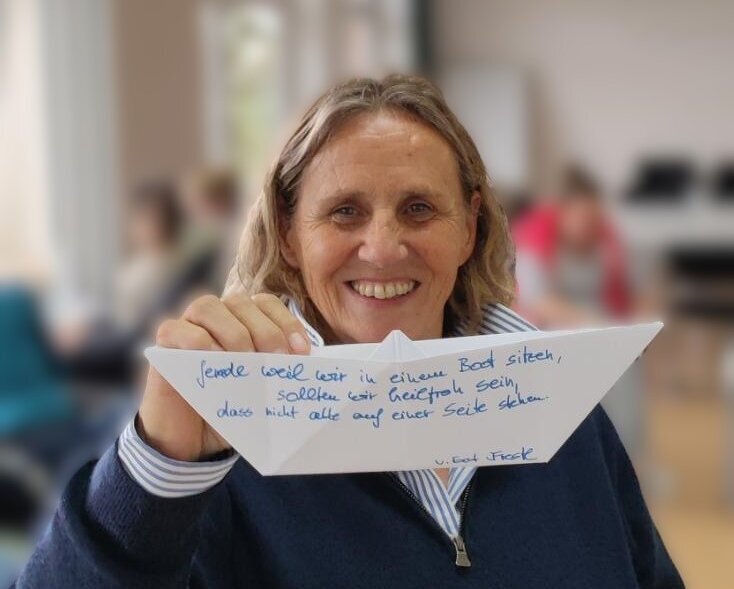 Gerade weil wir in einem Boot sitzen,
sollten wir heilfroh sein,
dass nicht alle auf einer Seite stehen.
v. Ernst Ferstl